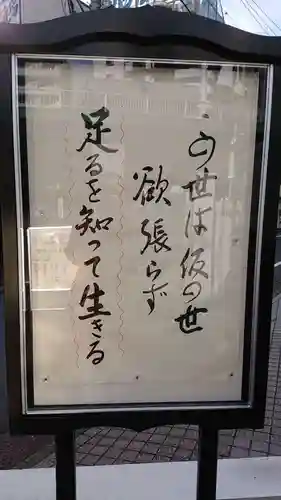 この世は仮の世
欲張らず
足るを知って生きる